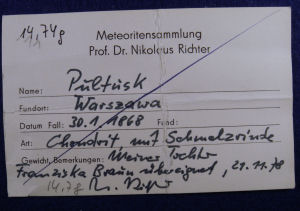 14,74g
Meteoritensammlung
Prof. Dr. Nikolaus Richter
Name: Pultusk
Fundort: Warszawa
Datum Fall: 30.1.1868 Fund:
Art: Chondrit, mit Schmelzrinde
Gewicht, Bemerkungen: Meiner Tochter
Franziska Braun übereignet, 21.11.78
14,7g